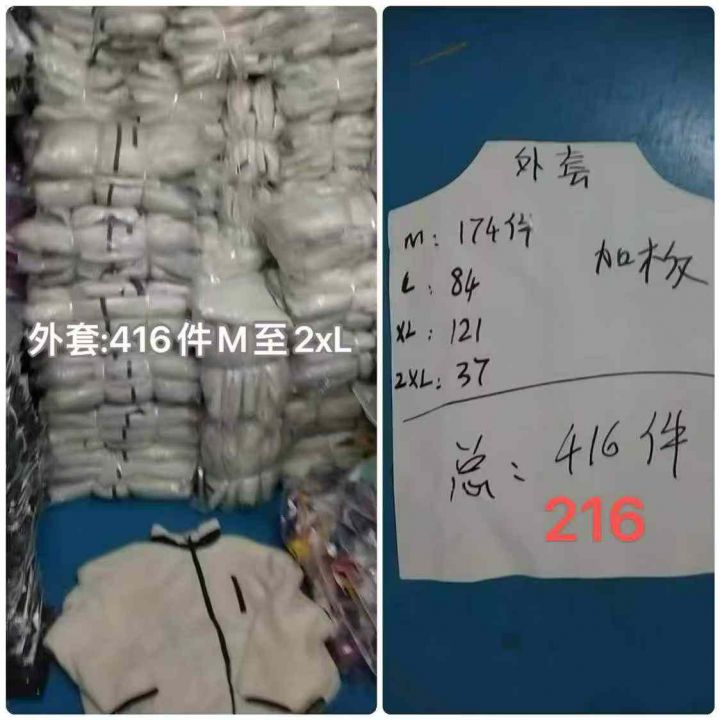 外套:416件M至2xL
外套
M: 174件
加杉
L: 84
XL: 121
2XL: 37
总: 416件
216